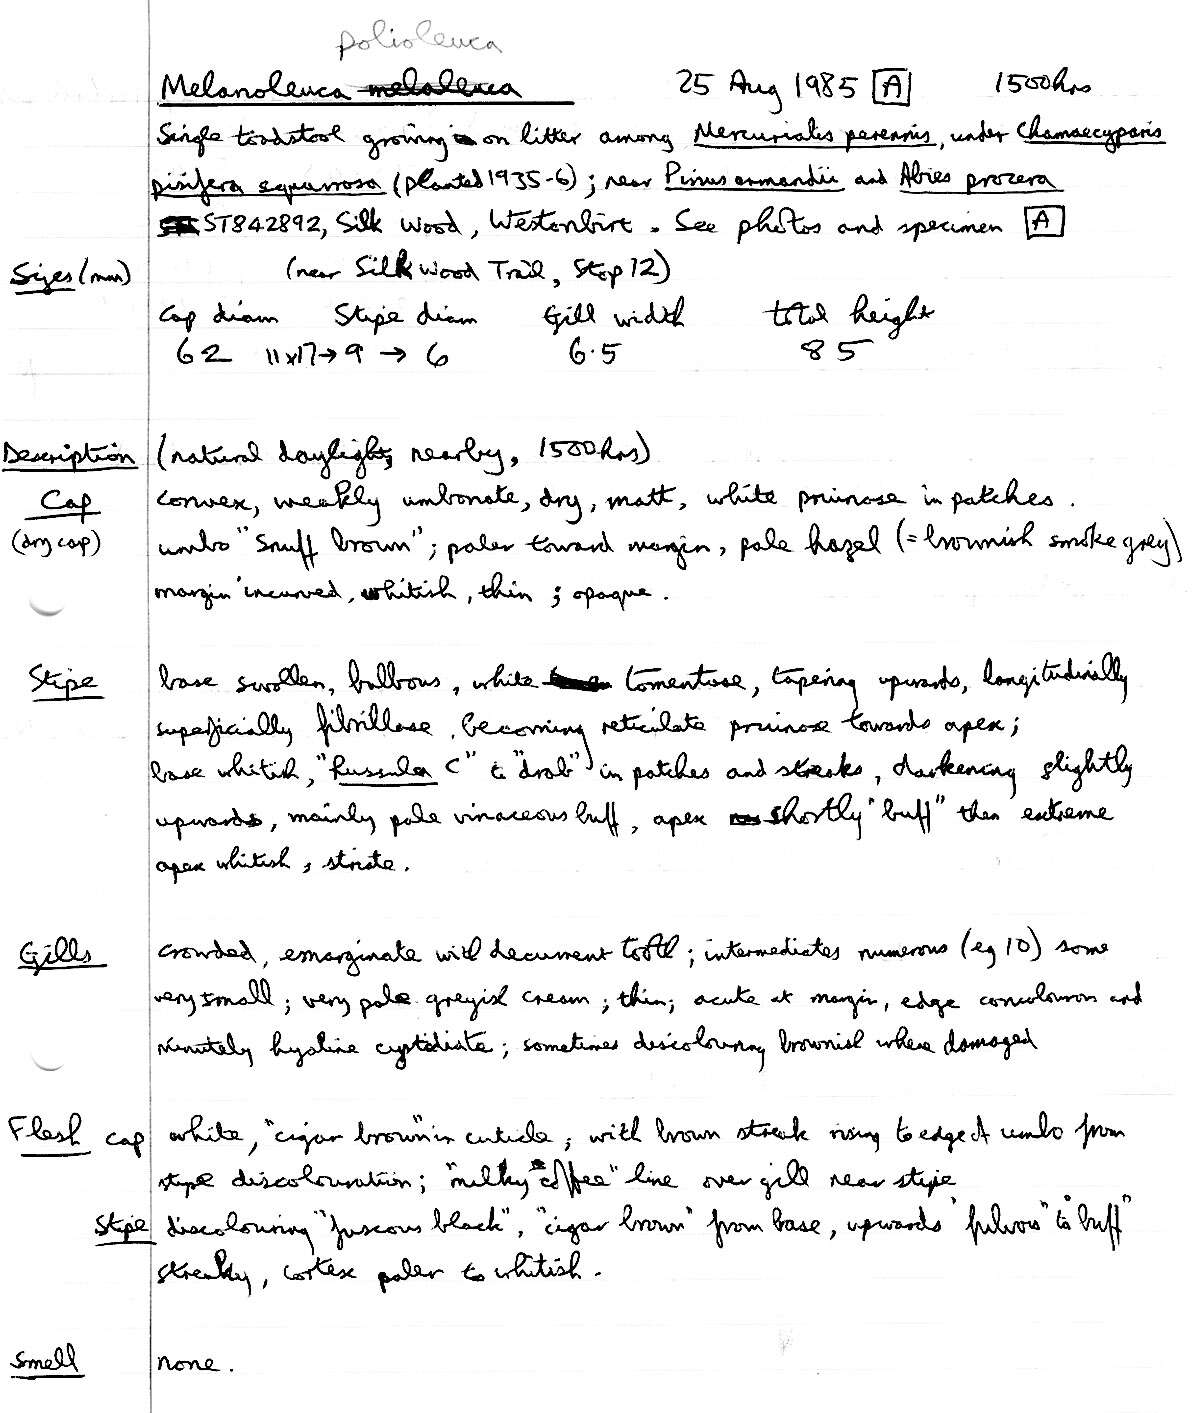 polioleuca
Melanoleuca melaleuca 25 Aug 1985 A 1500hrs
Single toadstool growing on litter among Mercurialis perennis, under Chamaecyparis
pisifera squarrosa (planted 1935-6); near Pinus armandii and Abies procera
ST842892, Silk Wood, Westonbirt. See photos and specimen A
Sizes (mm) (near Silk Wood Trail, Stop 12)
Cap diam Stipe diam Gill width total height
62 11x17→9→6 6.5 85
Description (natural daylight, nearby, 1500hrs)
Cap convex, weakly umbonate, dry, matt, white pruinose in patches.
(dry cap) umbo "Snuff brown"; paler toward margin, pale hazel (= brownish smoke grey)
margin incurved, whitish, thin; opaque.
Stipe base swollen, bulbous, white tomentose, tapering upwards, longitudinally
superficially fibrillose, becoming reticulate pruinose towards apex;
base whitish, "Russula C" to "drab" in patches and streaks, darkening slightly
upwards, mainly pale vinaceous buff, apex shortly "buff" then extreme
apex whitish, striate.
Gills crowded, emarginate with decurrent tooth; intermediates numerous (eg 10) some
very small; very pale greyish cream; thin; acute at margin, edge concolourous and
minutely hyaline cystidiate; sometimes discolouring brownish where damaged
Flesh cap white, "cigar brown" in cuticle; with brown streak rising to edge of umbo from
stipe discolouration; "milky coffee" line over gill near stipe
Stipe discolouring "fuscous black", "cigar brown" from base, upwards "fulvous" to "buff"
streaky, cortex paler to whitish.
Smell none.